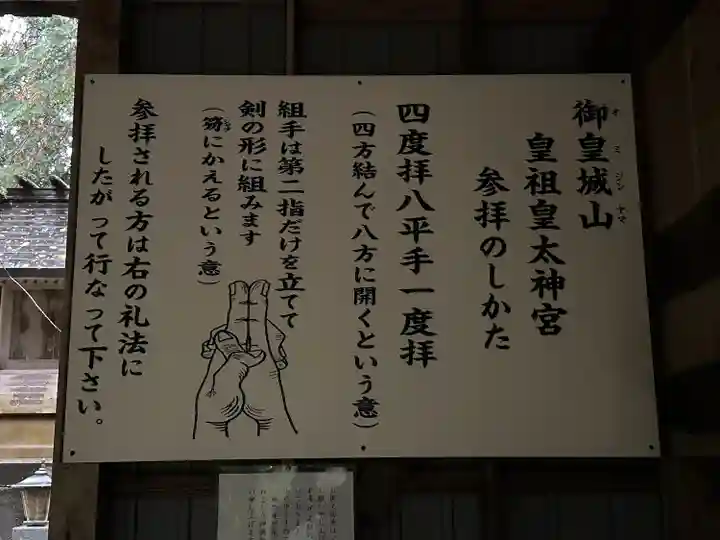 御皇城山
オミジンヤマ
皇祖皇太神宮
参拝のしかた
四度拝八平手一度拝
(四方結んで八方に開くという意)
組手は第二指だけを立てて
剣の形に組みます
にかえるという意)
参拝される方は右の礼法に
したがって行なって下さい。